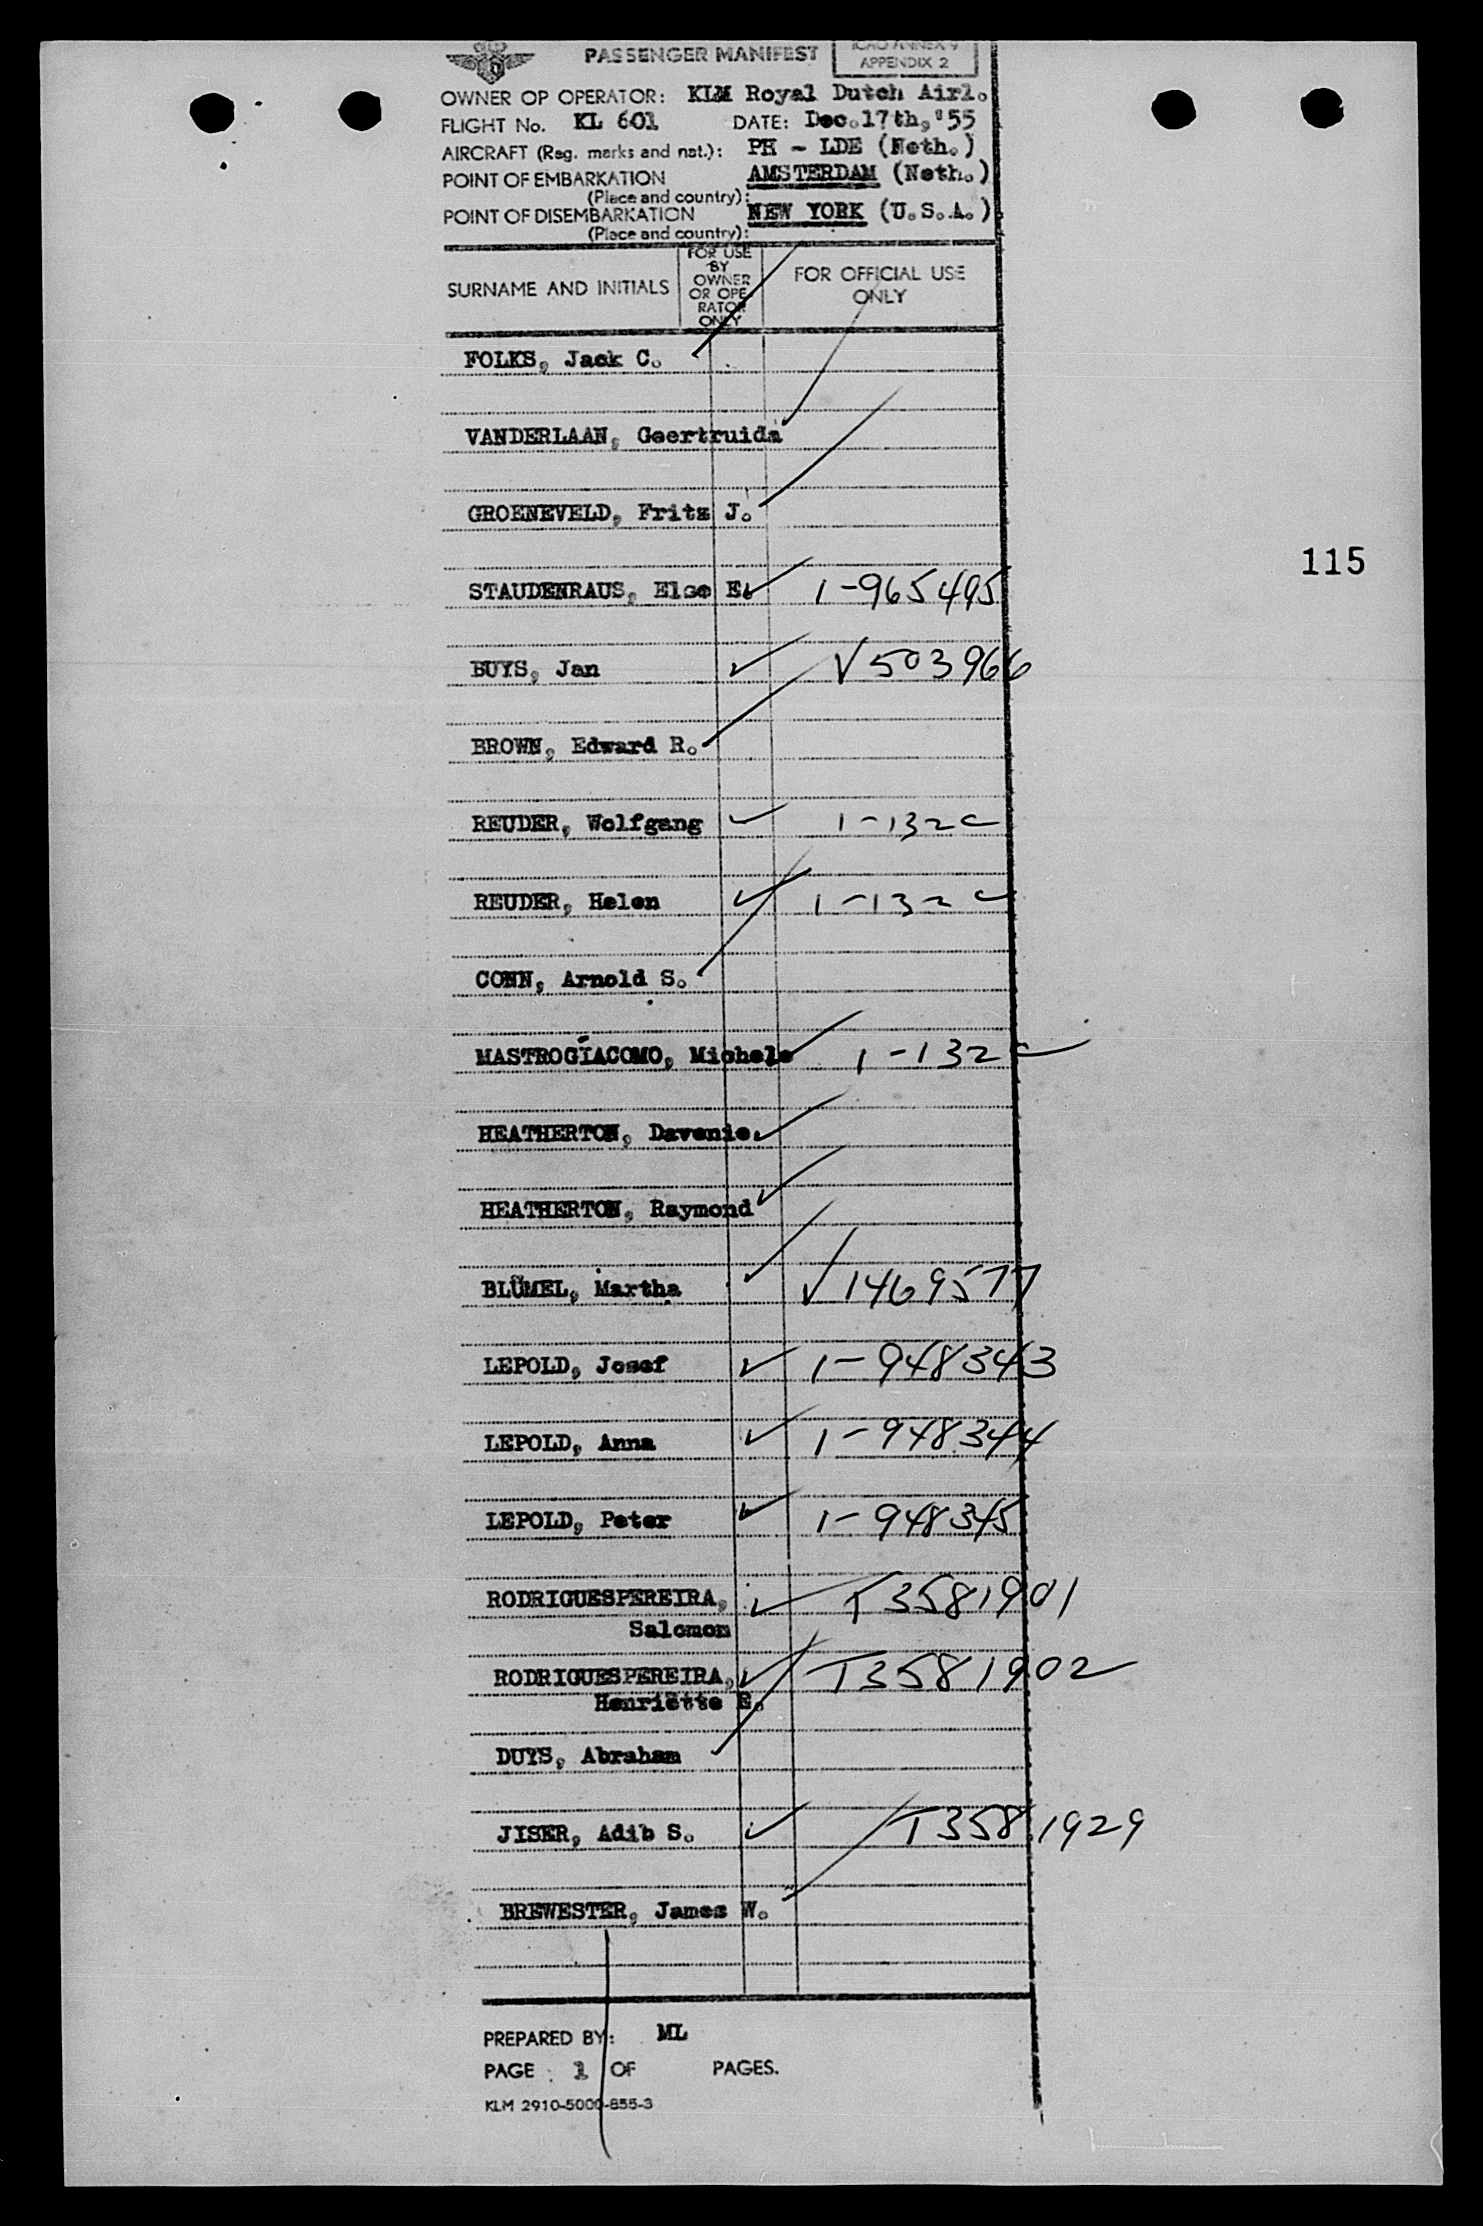 PASSENGER MANIFEST
ICAO ANNEX 9
APPENDIX 2
OWNER OP OPERATOR: KLM Royal Dutch Airl.
FLIGHT No. KL 601 DATE: Dec.17th,'55
AIRCRAFT (Reg. marks and nat.): PH - LDE (Neth.)
POINT OF EMBARKATION AMSTERDAM (Neth.)
(Place and country):
POINT OF DISEMBARKATION NEW YORK (U.S.A.)
(Place and country):
SURNAME AND INITIALS
FOR USE
BY
OWNER
OR OPE-
RATOR
ONLY
FOR OFFICIAL USE
ONLY
FOLKS, Jack C.
VANDERLAAN, Geertruida
GROENEVELD, Fritz J.
STAUDENRAUS, Else E. 1-965495
BUYS, Jan V503966
BROWN, Edward R.
REUDER, Wolfgang 1-132c
REUDER, Helen 1-132c
CONN, Arnold S.
MASTROGIACOMO, Michele 1-132c
HEATHERTON, Davenie.
HEATHERTON, Raymond
BLÜMEL, Martha V1469577
LEPOLD, Josef 1-948343
LEPOLD, Anna 1-948344
LEPOLD, Peter 1-948345
RODRIGUESPEREIRA, T3581901
Salomon
RODRIGUESPEREIRA, T3581902
Henriëtte E.
DUYS, Abraham
JISER, Adib S. T3581929
BREWESTER, James W.
PREPARED BY: ML
PAGE : 1 OF PAGES.
KLM 2910-5000-855-3
115